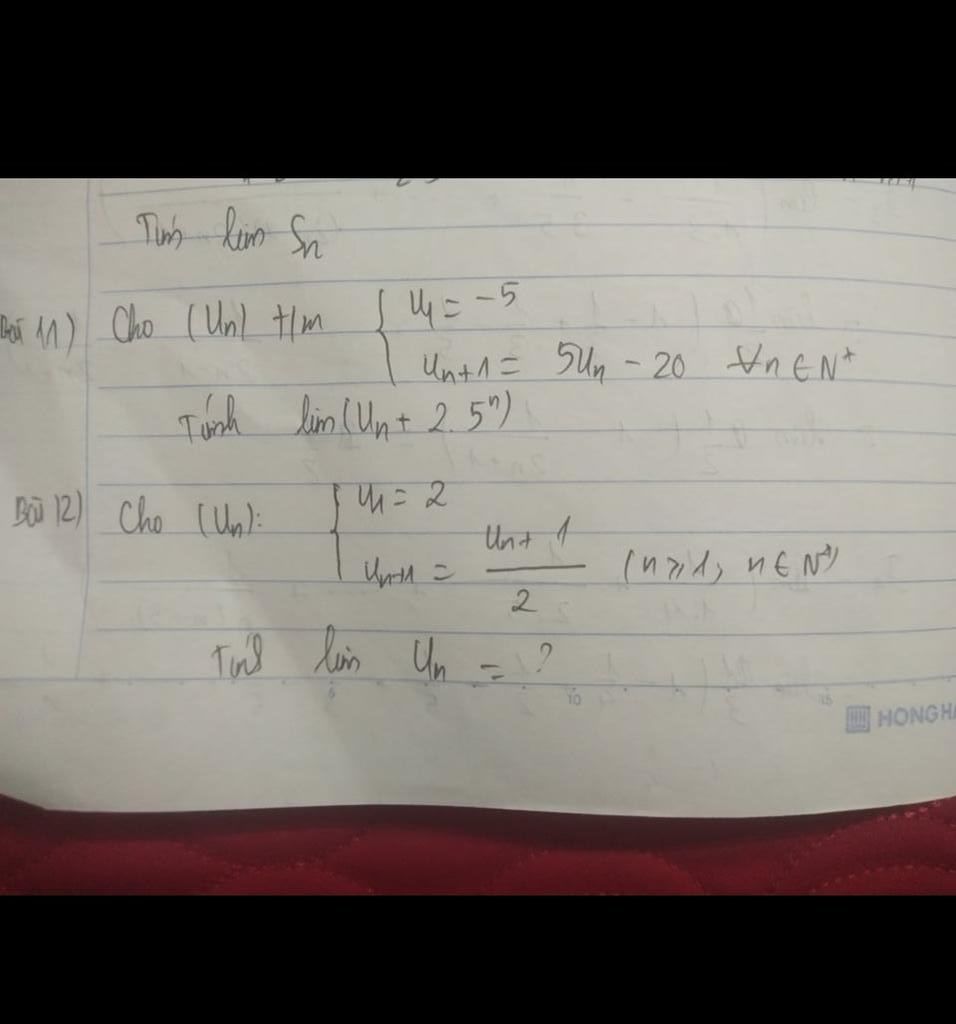 Tính lim Sₙ
Bài 11) Cho (Uₙ) t/m { u₁ = -5
uₙ₊₁ = 5Uₙ - 20 ∀n ∈ N⁺
Tính lim(Uₙ + 2.5ⁿ)
Bài 12) Cho (Uₙ): { u₁ = 2
uₙ₊₁ = (uₙ + 1)/2 (n ≥ 1, n ∈ N*)
Tính lim Uₙ = ?
HONG HA